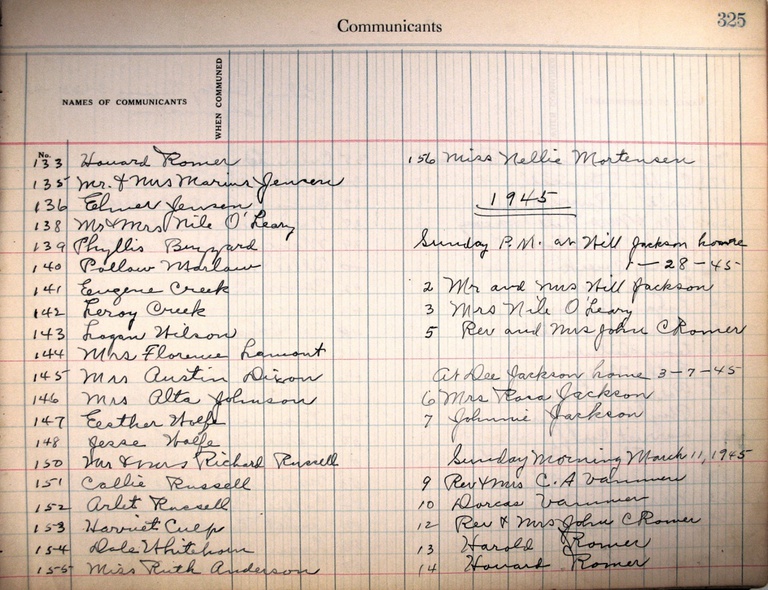 325
Communicants
NAMES OF COMMUNICANTS
WHEN COMMUNED
No.
133 Howard Romer
135 Mr. & Mrs Marius Jensen
136 Elmer Jensen
138 Mr & Mrs Nile O'Leary
139 Phyllis Buzzard
140 Marlow
141 Eugene Creek
142 Leroy Creek
143 Logan Wilson
144 Mrs Florence Lamont
145 Mrs Austin Dixon
146 Mrs Alta Johnson
147 Eesther Wolfe
148 Jesse Wolfe
150 Mr & Mrs Richard Russell
151 Callie Russell
152 Arlet Russell
153 Harriet Culp
154 Dale Whitehorn
155 Miss Ruth Anderson
156 Miss Nellie Mortensen
1945
Sunday P.M. at Will Jackson home
1-28-45
2 Mr and Mrs Will Jackson
3 Mrs Nile O'Leary
5 Rev and Mrs John C Romer
At Dee Jackson home 3-7-45
6 Mrs Rosa Jackson
7 Johnnie Jackson
Sunday Morning March 11, 1945
9 Rev & Mrs C. A Vammen
10 Dorcas Vammen
12 Rev & Mrs John C Romer
13 Harold Romer
14 Howard Romer